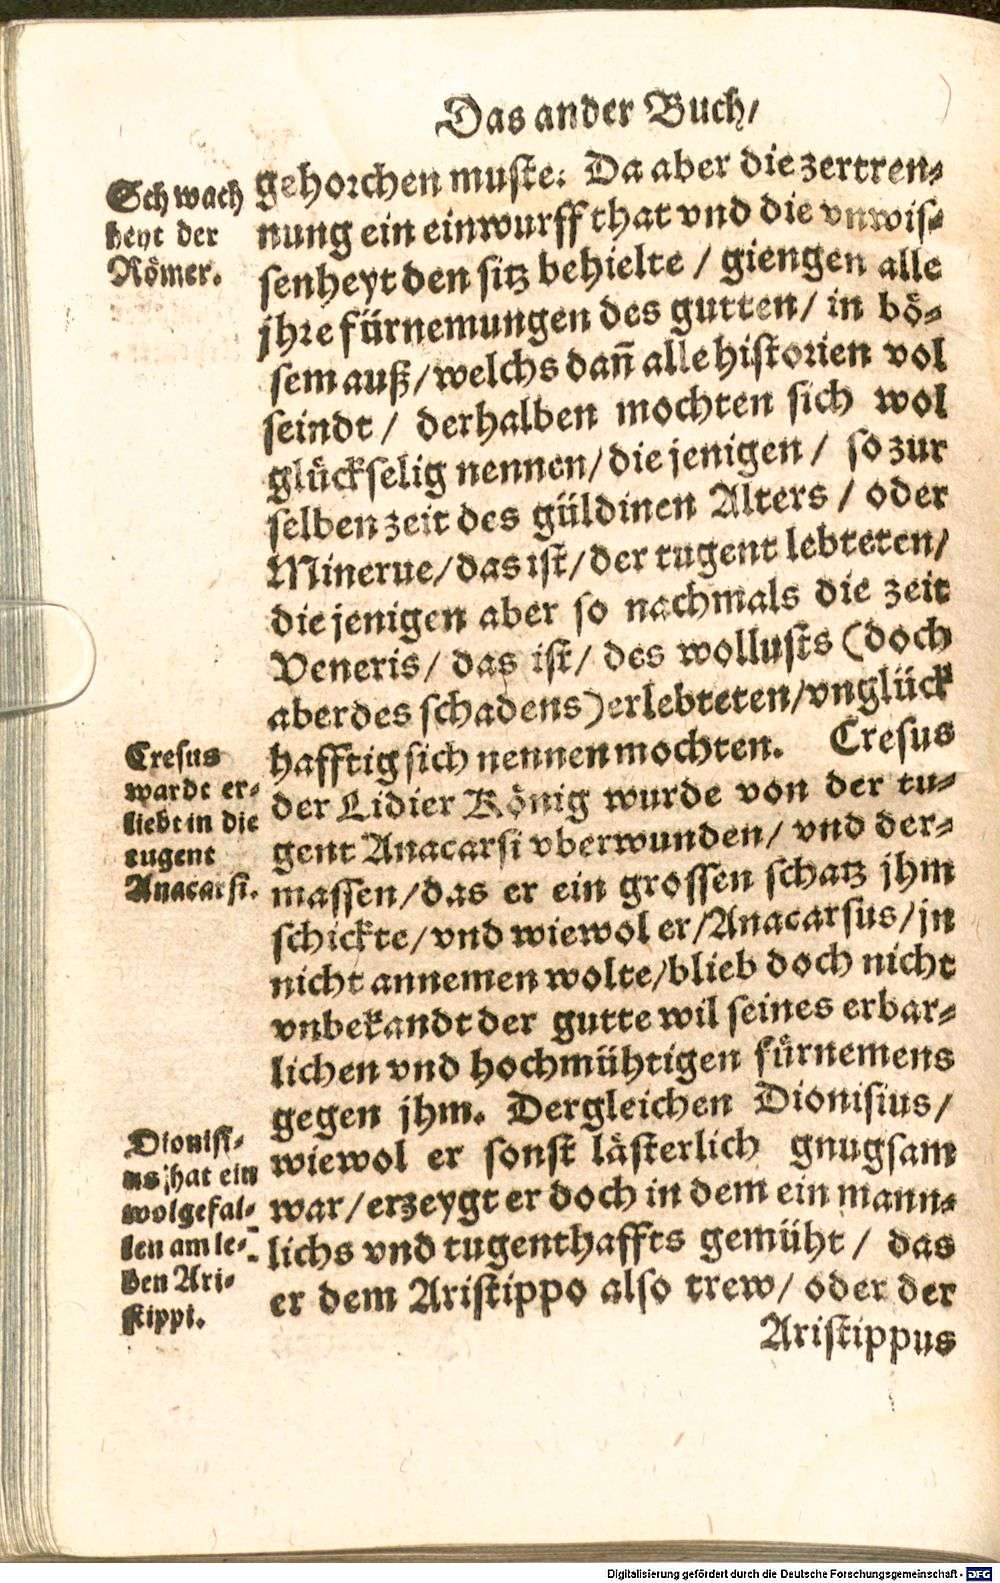 Das ander Buch/
Schwach
heyt der
Römer.
gehorchen muste: Da aber die zertren-
nung ein einwurff that vnd die vnwis-
senheyt den sitz behielte / giengen alle
jhre fürnemungen des gutten/ in bö-
sem auß/welchs dañ alle historien vol
seindt / derhalben mochten sich wol
glückselig nennen/die jenigen / so zur
selben zeit des güldinen Alters / oder
Minerue/das ist/der tugent lebteten/
die jenigen aber so nachmals die zeit
Veneris/ das ist/ des wollusts (doch
aber des schadens) erlebteten/vnglück
hafftig sich nennen mochten. Cresus
der Lidier König wurde von der tu-
gent Anacarsi vberwunden/ vnd der-
massen/das er ein grossen schatz jhm
schickte/vnd wiewol er/Anacarsus/jn
nicht annemen wolte/blieb doch nicht
vnbekandt der gutte wil seines erbar-
lichen vnd hochmühtigen fürnemens
gegen jhm. Dergleichen Dionisius/
wiewol er sonst lästerlich gnugsam
war/erzeygt er doch in dem ein mann-
lichs vnd tugenthaffts gemüht / das
er dem Aristippo also trew/ oder der
Aristippus
Cresus
wardt er-
liebt in die
tugent
Anacarsi.
Dionisi-
us hat ein
wolgefal-
len am le-
ben Ari-
stippi.
Digitalisierung gefördert durch die Deutsche Forschungsgemeinschaft - DFG